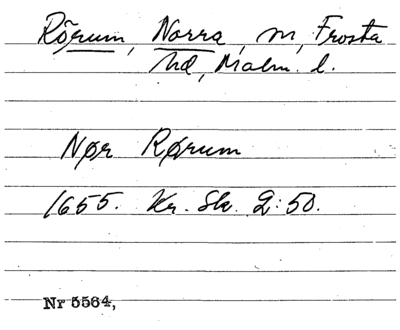 Rörum, Norra, m, Frosta
hd, Malm. l.
Nør Rørum
1655. Kr. Sk. 2:50.
Nr 5564,